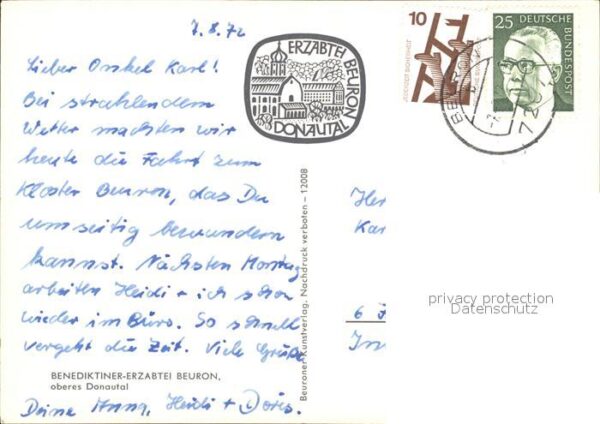 7.8.72
Lieber Onkel Karl!
Bei strahlendem
Wetter machten wir
heute die Fahrt zum
Kloster Beuron, das Du
umseitig bewundern
kannst. Nächsten Montag
arbeiten Heidi + ich schon
wieder im Büro. So schnell
vergeht die Zeit. Viele Grüße
BENEDIKTINER-ERZABTEI BEURON,
oberes Donautal
Deine Anna, Heidi + Doris.
ERZABTEI BEURON
DONAUTAL
Beuroner Kunstverlag. Nachdruck verboten - 12008
10
JEDERZEIT SICHERHEIT
25 DEUTSCHE
BUNDESPOST
BEURON
72
Her
Kar
6
privacy protection
Datenschutz